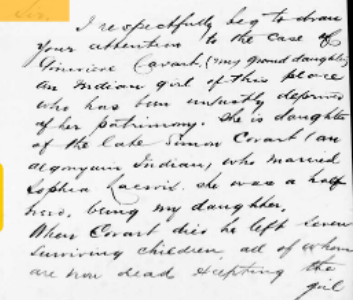 Sir,
I respectfully beg to draw
your attention to the case of
Covart, (my grand daughter)
an Indian girl of this place
who has been unjustly deprived
of her patrimony. She is daughter
of the late Simon Covart (an
algonquin Indian) who married
Sophia Lacrois. she was a half
breed, being my daughter,
When Covart died he left seven
surviving children, all of whom
are now dead excepting the
girl